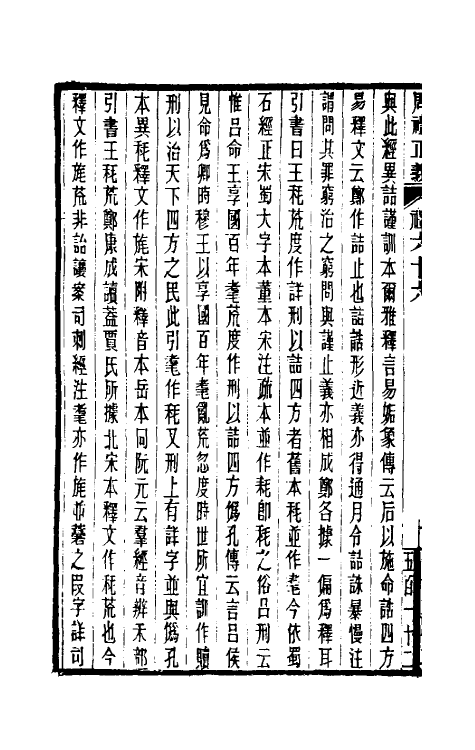 周禮正義 禮六十六 五百一十二
與此經異詰謹訓本爾雅釋言易姤象傳云后以施命詰四方
易釋文云鄭作詰止也詰誥形近義亦得通月令詰誅暴慢注
謂問其罪窮治之窮問與謹止義亦相成鄭各據一偏爲釋耳
引書曰王秏荒度作詳刑以詰四方者舊本秏並作耄今依蜀
石經正宋蜀大字本董本宋注疏本並作耗卽秏之俗呂刑云
惟呂命王享國百年耄荒度作刑以詰四方僞孔傳云言呂侯
見命爲卿時穆王以享國百年耄亂荒忽度時世所宜訓作贖
刑以治天下四方之民此引耄作秏又刑上有詳字並與僞孔
本異秏釋文作旄宋附釋音本岳本同阮元云羣經音辨禾部
引書王秏荒鄭康成讀蓋賈氏所據北宋本釋文作秏荒也今
釋文作旄荒非詒讓案司刺經注耄亦作旄並薹之叚字詳司